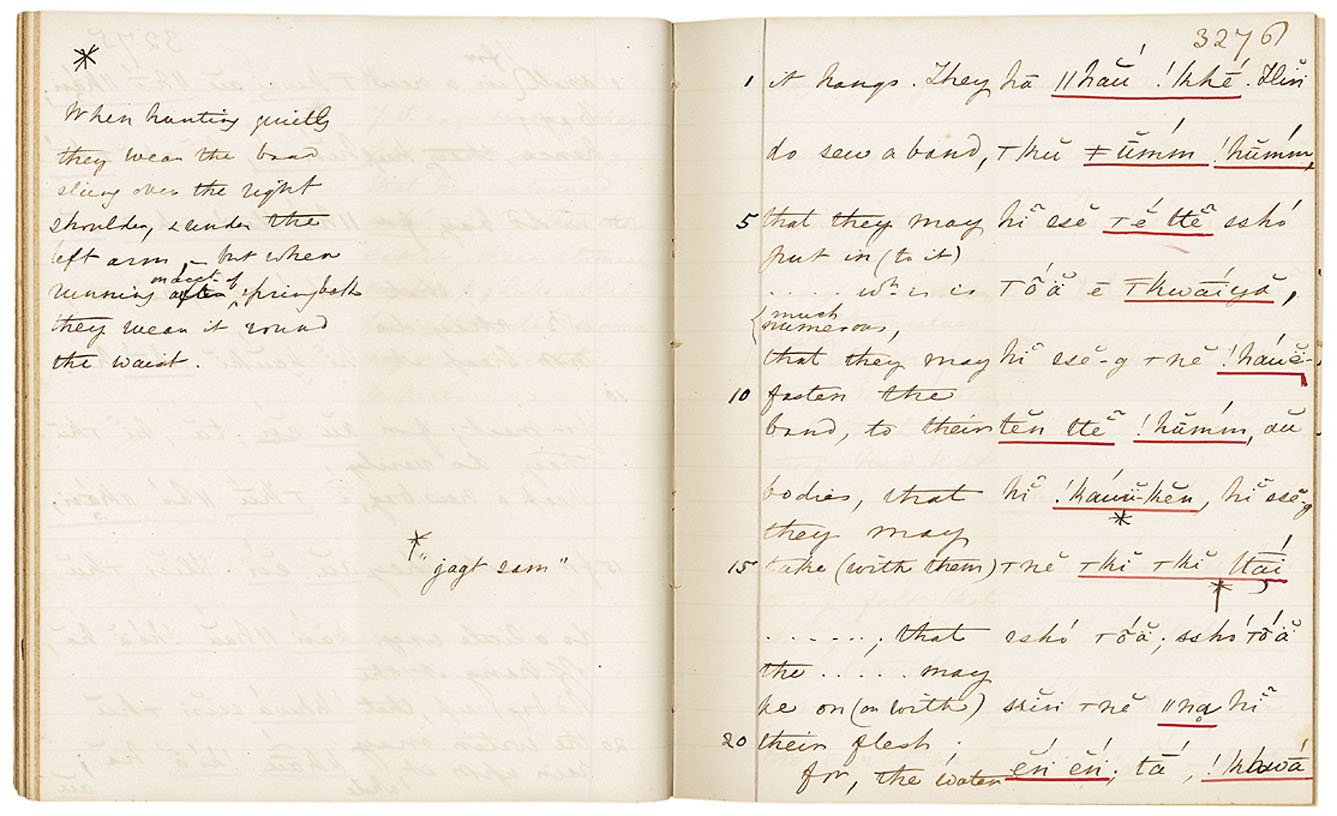 *
When hunting quietly
they wear the band
slung over the right
shoulder, & under the
left arm, – but when
running on acct of springbok
they wear it round
the waist.
*
"jagt sam"
3276
1 it hangs. They hā ǁhău´ !kké. Hĭn
do sew a band, ⊤kŭ ǂŭmḿ !hŭmḿ,
5 that they may hĭⁿ ssĕ ⊤é ttĕⁿ sshó
put in (to it)
..... wh. is is ⊤óä ē ⊤kwáiyă,
{much
numerous,
that they may hĭⁿ ssĕ-g ⊤nĕ !háuĕ-
10 fasten the
band, to their tĕn ttĕⁿ !hŭmḿ, aŭ
bodies, that hĭⁿ !káuŭ-kĕn, hĭⁿ ssĕ-g
*
they may
15 take (with them) ⊤nĕ ⊤kĭ ⊤kĭ ttāí
*
......, that sshó ⊤óä; sshó ⊤óä
the ..... may
be on (or with) ssĭn ⊤nĕ ǁna hĭⁿ
20 their flesh.
for, the water ĕń ĕń; tā´, !khwā´